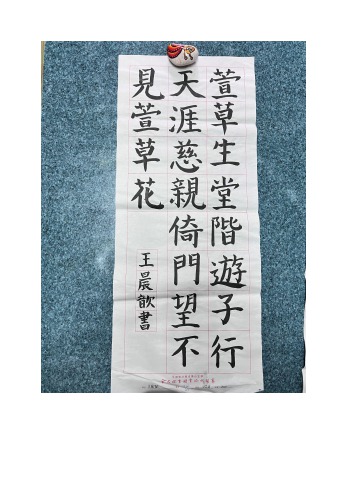 萱草生堂階遊子行
天涯慈親倚門望不
見萱草花
王晨歆書